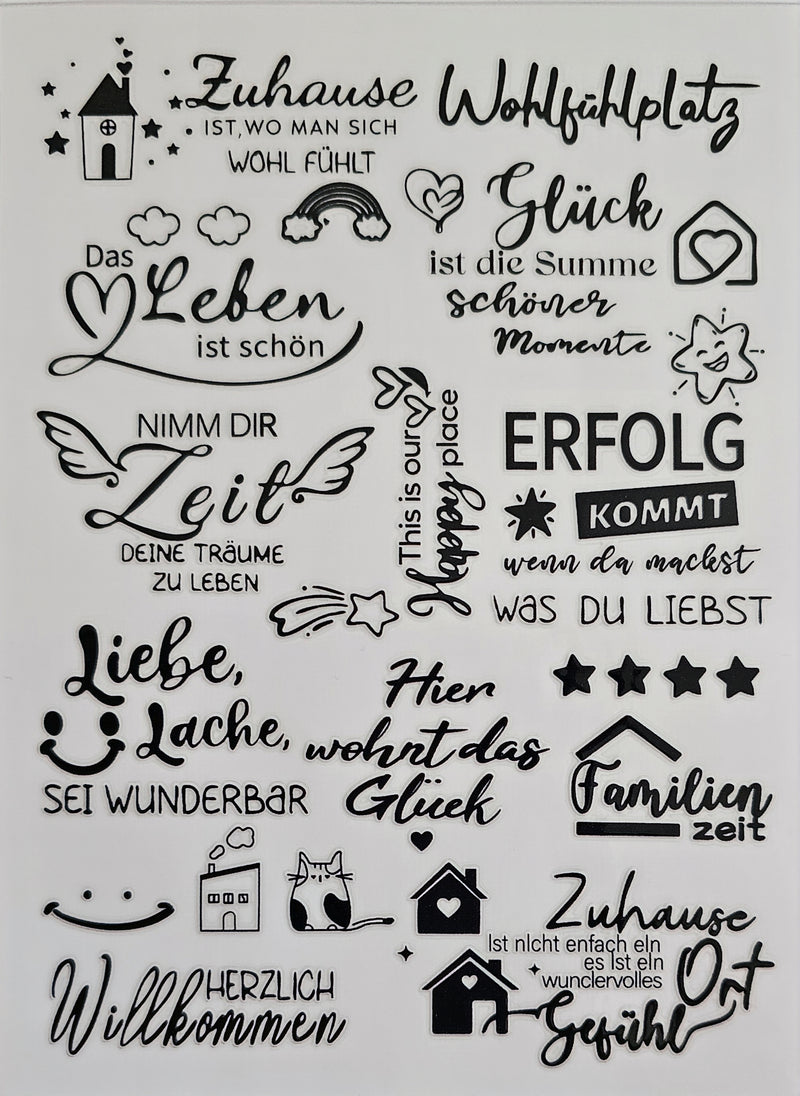 Zuhause
IST, WO MAN SICH
WOHL FÜHLT
Wohlfühlplatz
Glück
ist die Summe
schöner
Momente
Das
Leben
ist schön
NIMM DIR
Zeit
DEINE TRÄUME
ZU LEBEN
This is our
Happy place
ERFOLG
KOMMT
wenn da machst
WAS DU LIEBST
Liebe,
Lache,
SEI WUNDERBAR
Hier
wohnt das
Glück
Familien
zeit
HERZLICH
Willkommen
Zuhause
Ist nIcht enfach eIn
Ort
es Ist eIn
wunclervolles
Gefühl